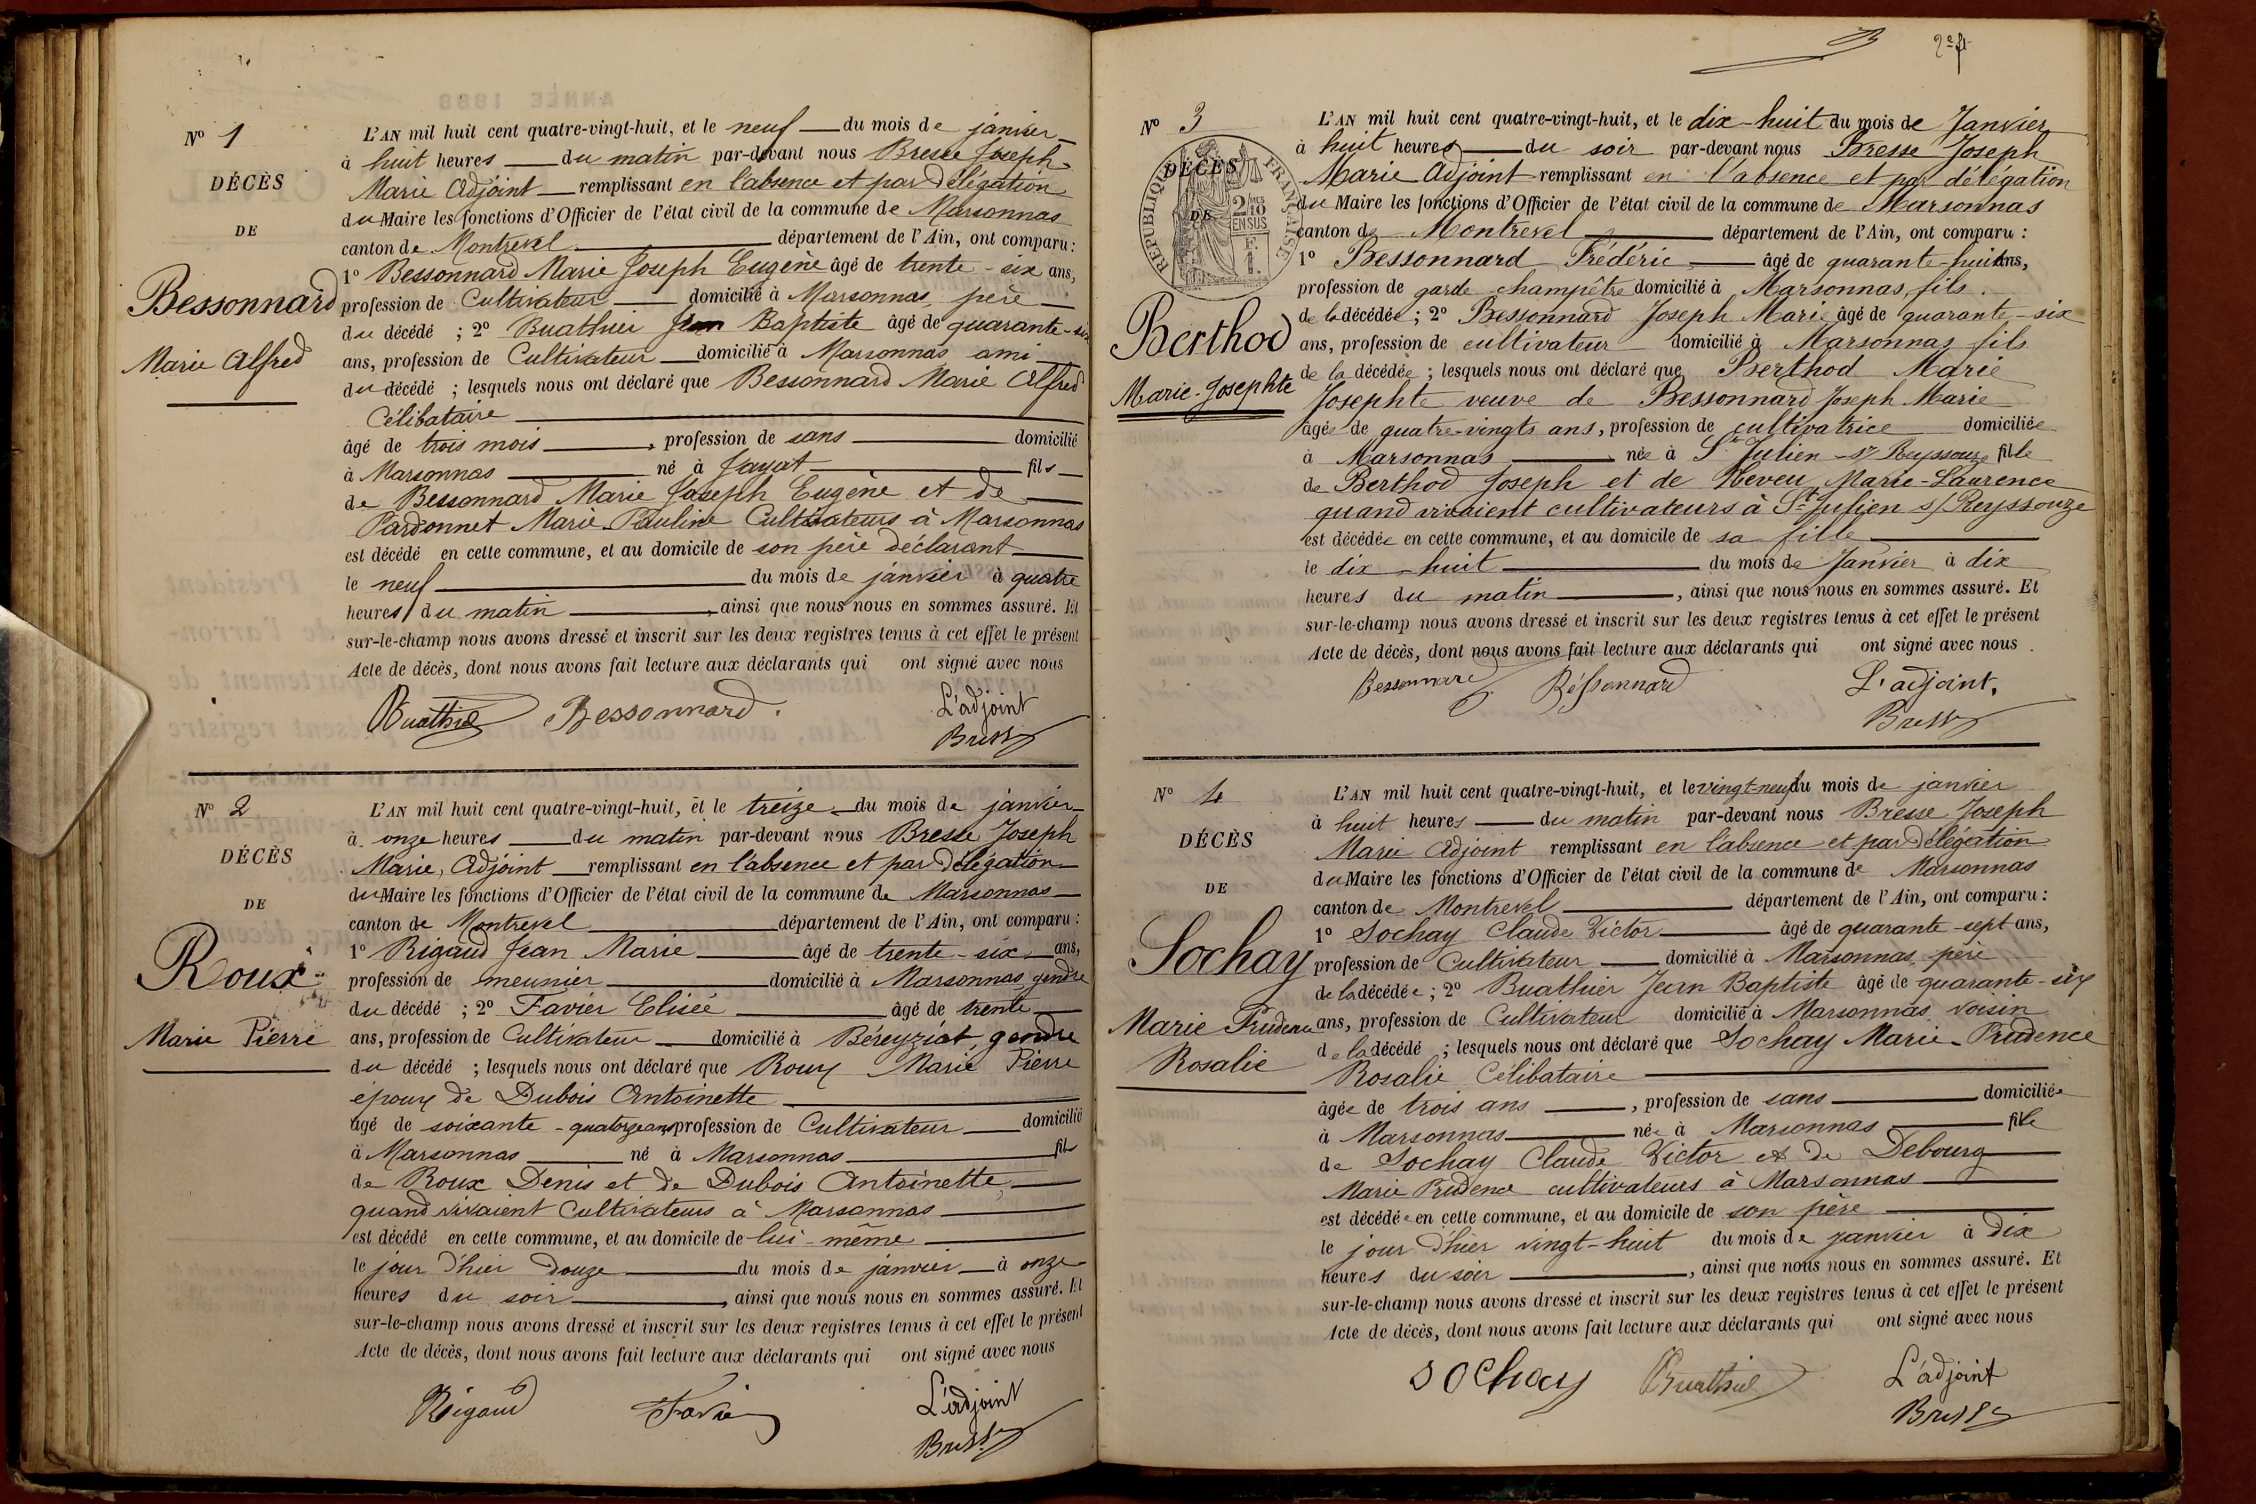 Nº 1
DÉCÈS
DE
Bessonnard
Marie Alfred
L'AN mil huit cent quatre-vingt-huit, et le neuf du mois de janvier
à huit heures du matin par-devant nous Bresse Joseph
Marie Adjoint remplissant en l'absence et par délégation
du Maire les fonctions d'Officier de l'état civil de la commune de Marsonnas
canton de Montrevel département de l'Ain, ont comparu :
1º Bessonnard Marie Joseph Eugène âgé de trente-six ans,
profession de Cultivateur domicilié à Marsonnas, père
du décédé ; 2º Buathier Jean Baptiste âgé de quarante-six
ans, profession de Cultivateur domicilié à Marsonnas ami
du décédé ; lesquels nous ont déclaré que Bessonnard Marie Alfred
Célibataire
âgé de trois mois , profession de sans domicilié
à Marsonnas né à Jayat fils
de Bessonnard Marie Joseph Eugène et de
Pardonnet Marie Pauline Cultivateurs à Marsonnas
est décédé en cette commune, et au domicile de son père déclarant
le neuf du mois de janvier à quatre
heures du matin , ainsi que nous nous en sommes assuré. Et
sur-le-champ nous avons dressé et inscrit sur les deux registres tenus à cet effet le présent
Acte de décès, dont nous avons fait lecture aux déclarants qui ont signé avec nous
Buathier Bessonnard L'adjoint
Bresse
Nº 2
DÉCÈS
DE
Roux
Marie Pierre
L'AN mil huit cent quatre-vingt-huit, et le treize du mois de janvier
à onze heures du matin par-devant nous Bresse Joseph
Marie, Adjoint remplissant en l'absence et par délégation
du Maire les fonctions d'Officier de l'état civil de la commune de Marsonnas
canton de Montrevel département de l'Ain, ont comparu :
1º Rigaud Jean Marie âgé de trente-six ans,
profession de meunier domicilié à Marsonnas gendre
du décédé ; 2º Favier Elisée âgé de trente
ans, profession de Cultivateur domicilié à Béreyziat, gendre
du décédé ; lesquels nous ont déclaré que Roux Marie Pierre
époux de Dubois Antoinette
âgé de soixante-quatorze ans profession de Cultivateur domicilié
à Marsonnas né à Marsonnas fils
de Roux Denis et de Dubois Antoinette,
quand vivaient Cultivateurs à Marsonnas
est décédé en cette commune, et au domicile de lui-même
le jour d'hier douze du mois de janvier à onze
heures du soir , ainsi que nous nous en sommes assuré. Et
sur-le-champ nous avons dressé et inscrit sur les deux registres tenus à cet effet le présent
Acte de décès, dont nous avons fait lecture aux déclarants qui ont signé avec nous
Rigaud Favier L'adjoint
Bresse
Nº 3
DÉCÈS
DE
RÉPUBLIQUE FRANÇAISE
2/10
EN SUS
Berthod
Marie-Josephte
L'AN mil huit cent quatre-vingt-huit, et le dix-huit du mois de Janvier
à huit heures du soir par-devant nous Bresse Joseph
Marie Adjoint remplissant en l'absence et par délégation
du Maire les fonctions d'Officier de l'état civil de la commune de Marsonnas
canton de Montrevel département de l'Ain, ont comparu :
1º Bessonnard Frédéric âgé de quarante-huit ans,
profession de garde champêtre domicilié à Marsonnas, fils
de la décédée ; 2º Bessonnard Joseph Marie âgé de quarante-six
ans, profession de cultivateur domicilié à Marsonnas fils
de la décédée ; lesquels nous ont déclaré que Berthod Marie
Josephte veuve de Bessonnard Joseph Marie
âgée de quatre-vingts ans, profession de cultivatrice domiciliée
à Marsonnas née à St Julien s/ Reyssouze fille
de Berthod Joseph et de Neveu Marie-Laurence
quand vivaient cultivateurs à St Julien s/ Reyssouze
est décédée en cette commune, et au domicile de sa fille
le dix-huit du mois de Janvier à dix
heures du matin , ainsi que nous nous en sommes assuré. Et
sur-le-champ nous avons dressé et inscrit sur les deux registres tenus à cet effet le présent
Acte de décès, dont nous avons fait lecture aux déclarants qui ont signé avec nous
Bessonnard Bessonnard L'adjoint,
Bresse
Nº 4
DÉCÈS
DE
Sochay
Marie Prudence
Rosalie
L'AN mil huit cent quatre-vingt-huit, et le vingt-neuf du mois de janvier
à huit heures du matin par-devant nous Bresse Joseph
Marie Adjoint remplissant en l'absence et par délégation
du Maire les fonctions d'Officier de l'état civil de la commune de Marsonnas
canton de Montrevel département de l'Ain, ont comparu :
1º Sochay Claude Victor âgé de quarante-sept ans,
profession de Cultivateur domicilié à Marsonnas père
de la décédée ; 2º Buathier Jean Baptiste âgé de quarante-six
ans, profession de Cultivateur domicilié à Marsonnas voisin
de la décédé ; lesquels nous ont déclaré que Sochay Marie-Prudence
Rosalie Célibataire
âgée de trois ans , profession de sans domiciliée
à Marsonnas née à Marsonnas fille
de Sochay Claude Victor et de Debourg
Marie Prudence cultivateurs à Marsonnas
est décédée en cette commune, et au domicile de son père
le jour d'hier vingt-huit du mois de janvier à dix
heures du soir , ainsi que nous nous en sommes assuré. Et
sur-le-champ nous avons dressé et inscrit sur les deux registres tenus à cet effet le présent
Acte de décès, dont nous avons fait lecture aux déclarants qui ont signé avec nous
Sochay Buathier L'adjoint
Bresse